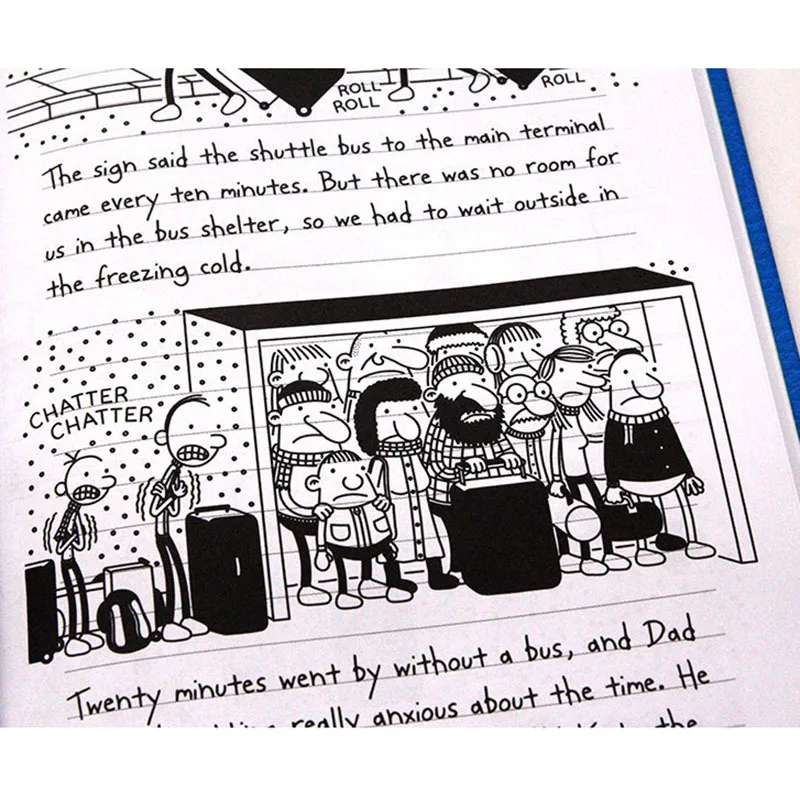 ROLL
ROLL
ROLL
The sign said the shuttle bus to the main terminal
came every ten minutes. But there was no room for
us in the bus shelter, so we had to wait outside in
the freezing cold.
CHATTER
CHATTER
Twenty minutes went by without a bus, and Dad
really anxious about the time. He
the